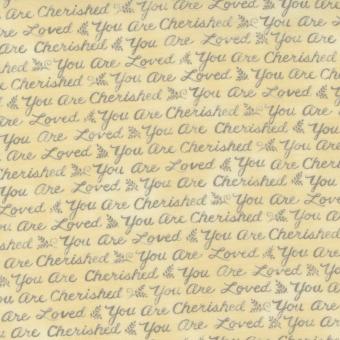 You Are Cherished You Are Loved
Are Loved You Are Cherished
Are Cherished You Are Loved You
Are Loved You Are Cherished
You Are Cherished You Are Loved
You Are Loved You Are Cherished
You Are Cherished You Are Loved
You Are Loved You Are Cherished
You Are Cherished You Are Loved
Are Loved You Are Cherished
You Are Cherished You Are Loved
Are Loved You Are Cherished
You Are Cherished You Are Loved
Loved You Are Cherished You
Are Cherished You Are Loved
Loved You Are Cherished You
Are Cherished You Are Loved
You Are Loved You Are
Are Cherished You Are Loved